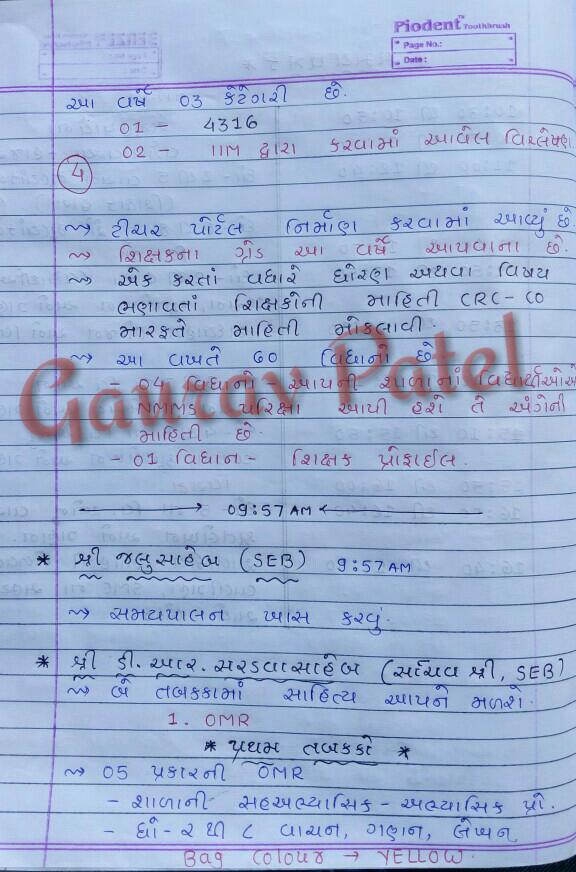 Piodent Toothbrush
Page No.:
Date:
આ વર્ષે 03 કેટેગરી છે.
01 - 4316
02 - IIM દ્વારા કરવામાં આવેલ વિશ્લેષણ
4
ટીચર પોર્ટલ નિર્માણ કરવામાં આવ્યું છે
શિક્ષકના ગ્રેડ આ વર્ષે આપવાના છે.
એક કરતાં વધારે ધોરણ અથવા વિષય
ભણાવતાં શિક્ષકોની માહિતી CRC-CO
મારફતે માહિતી મોકલાવી.
આ વખતે 60 વિધાનો છે
- 04 વિધાનો - આપની શાળાનાં વિદ્યાર્થીઓએ
NMMS પરિક્ષા આપી હશે તે અંગેની
માહિતી છે.
- 01 વિધાન - શિક્ષક પ્રોફાઈલ.
Gaurav Patel
09:57AM
* શ્રી જલુસાહેબ (SEB) 9:57AM
સમયપાલન ખાસ કરવું.
* શ્રી ડી. આર. સરડવાસાહેબ (સચિવ શ્રી, SEB)
બે તબક્કામાં સાહિત્ય આપને મળશે.
1. OMR
* પ્રથમ તબક્કો *
05 પ્રકારની OMR
- શાળાની સહઅભ્યાસિક - અભ્યાસિક પ્રો.
- ધો - ૨ થી ૮ વાચન, ગણન, લેખન
Bag Colour → YELLOW.